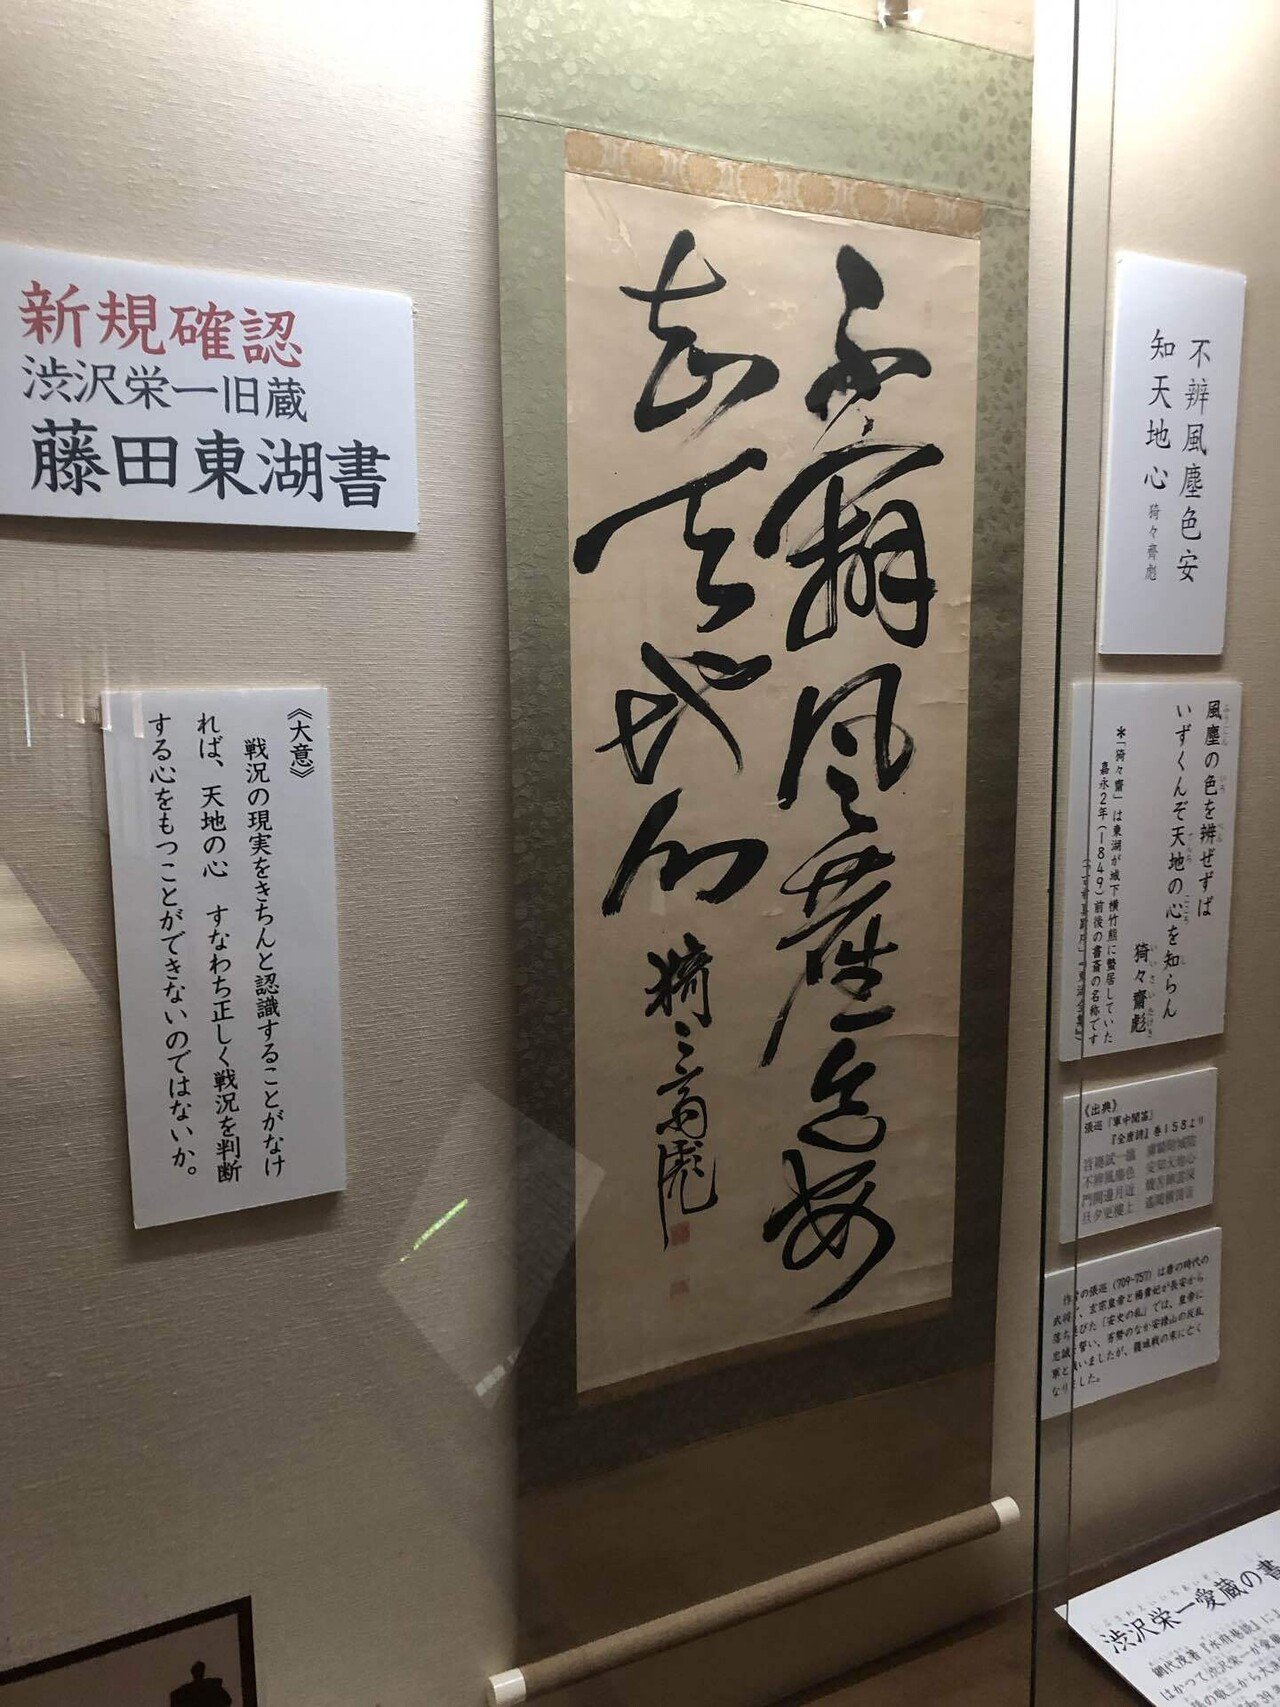 新規確認
渋沢栄一旧蔵
藤田東湖書
《大意》
戦況の現実をきちんと認識することがなけ
れば、天地の心　すなわち正しく戦況を判断
する心をもつことができないのではないか。
不辨風塵色安
知天地心
猗々齋彪
不辨風塵色安
知天地心 猗々齊彪
風塵の色を辨ぜずば
いずくんぞ天地の心を知らん
猗々齋彪
*「猗々齋」は東湖が城下横竹熊に蟄居していた
嘉永2年(1849)前後の書斎の名称です
《出典》
張巡『軍中聞笛』
『全唐詩』巻158より
岧嶤試一臨 虜騎附城陰
不辨風塵色 安知天地心
門開邊月近 戰苦陣雲深
旦夕更樓上 遙聞橫笛音
作者の張巡(709-757)は唐の時代の
武将で、玄宗皇帝と楊貴妃が長安から
落ち延びた「安史の乱」では、皇帝に
忠誠を誓い、劣勢のなか安禄山の反乱
軍と戦いましたが、籠城戦の末に亡く
なりました。
渋沢栄一愛蔵の書
網代茂著『水府巷談』に
はかつて渋沢栄一が愛蔵